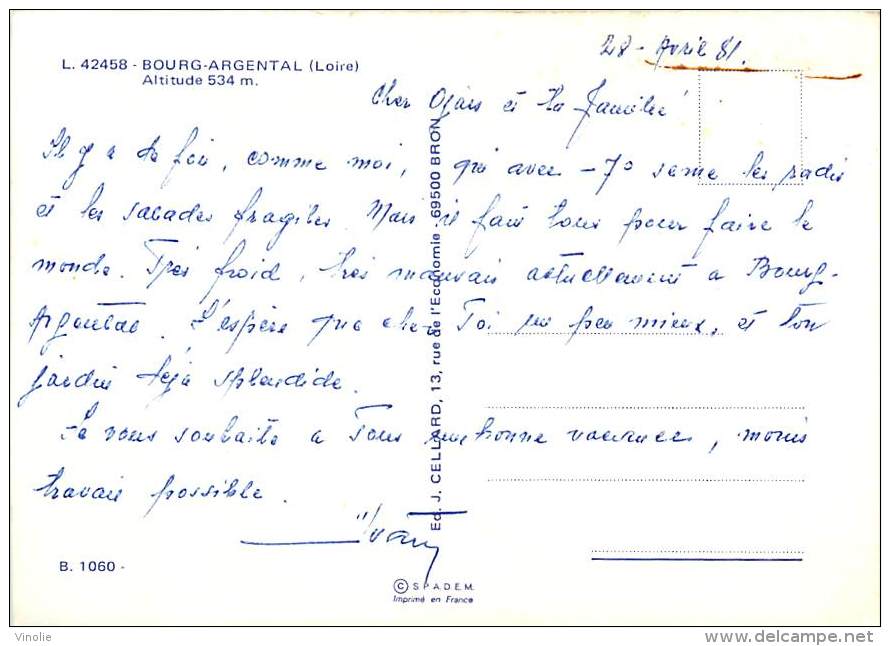 28 - Avril 81.
L. 42458 - BOURG-ARGENTAL (Loire)
Altitude 534 m.
Cher et ta famille
Il y a de fou, comme moi, qui avec -7° seme les radis
et les salades fragiles. Mais il faut tous pour faire le
monde. Très froid, très mauvais actuellement a Bourg-
Argental. J'espère que chez Toi un peu mieux, et ton
jardin déjà splendide.
Je vous souhaite a Tous une bonne vacances, moins
travail possible.
Ivan
Ed. J. CELLARD, 13, rue de l'Economie - 69500 BRON
B. 1060 -
© S.P.A.D.E.M.
Imprimé en France
Vinolie
delcampe.net